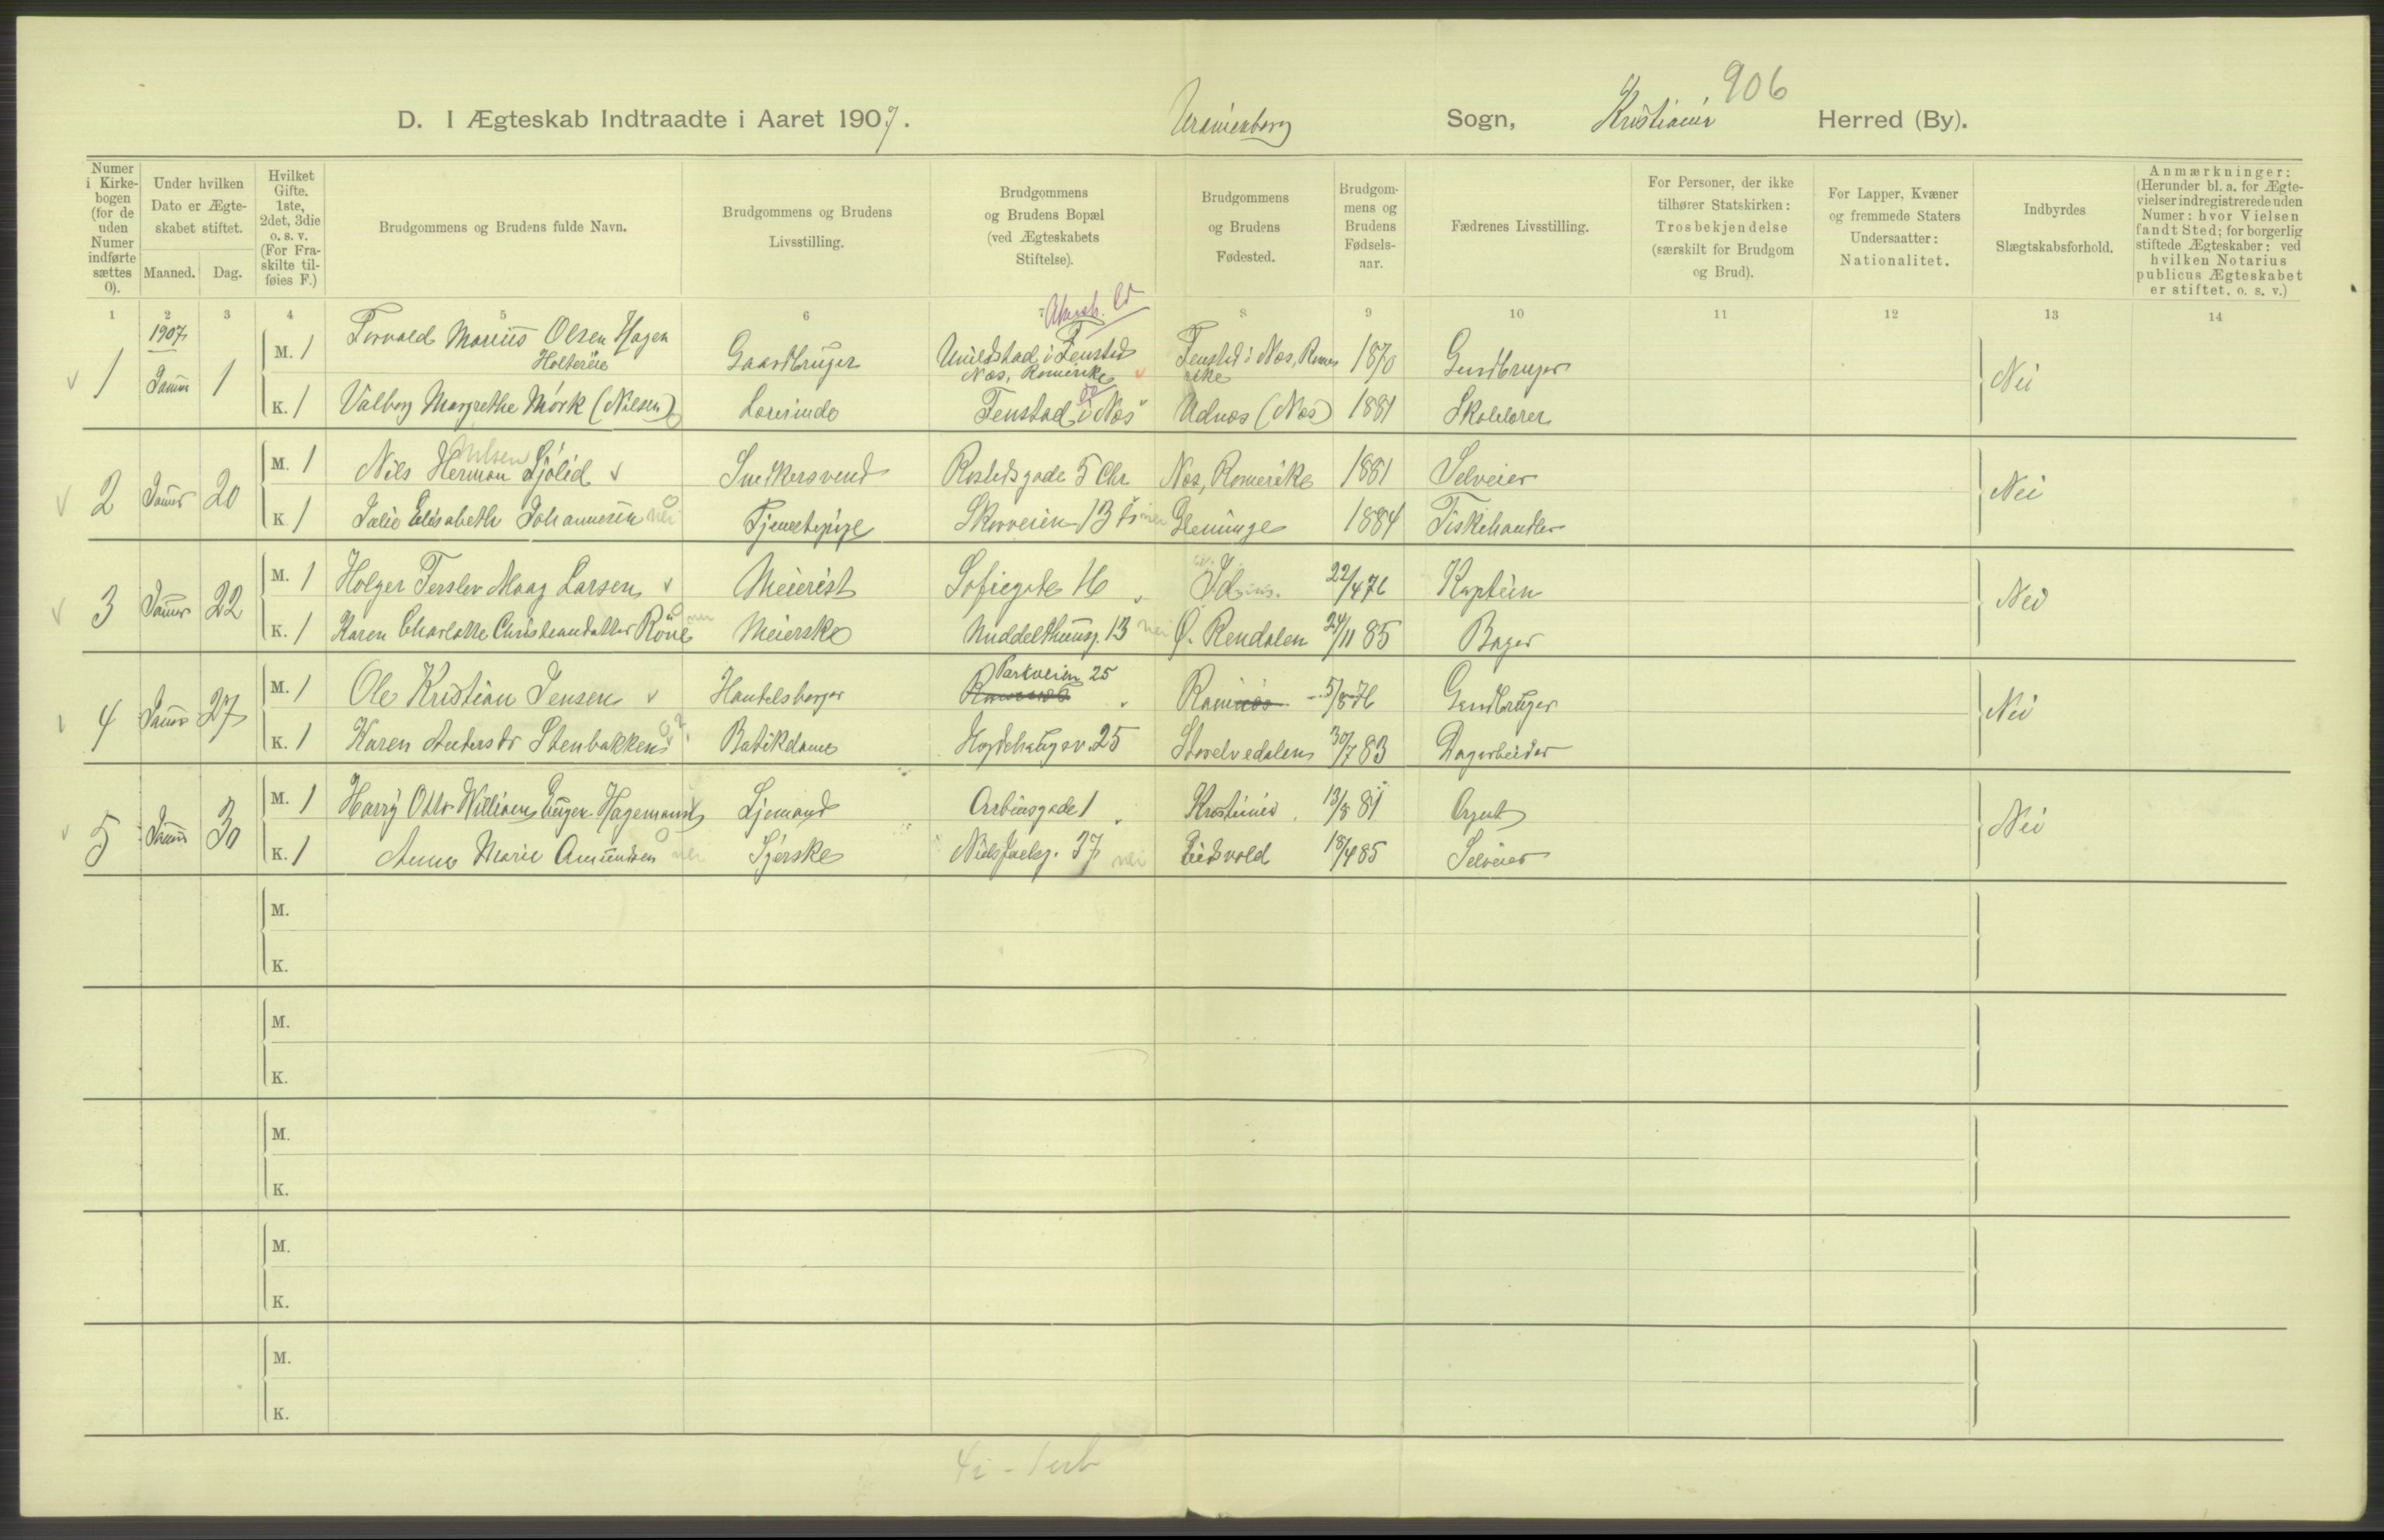 906
D. I Ægteskab Indtraadte i Aaret 1907. Uranienborg Sogn, Kristiania Herred (By).
Numer i Kirkebogen (for de uden Numer indførte sættes 0).
Under hvilken Dato er Ægteskabet stiftet.
Maaned. Dag.
Hvilket Gifte. 1ste, 2det, 3die o. s. v. (For Fraskilte tilføies F.)
Brudgommens og Brudens fulde Navn.
Brudgommens og Brudens Livsstilling.
Brudgommens og Brudens Bopæl (ved Ægteskabets Stiftelse).
Brudgommens og Brudens Fødested.
Brudgommens og Brudens Fødselsaar.
Fædrenes Livsstilling.
For Personer, der ikke tilhører Statskirken: Trosbekjendelse (særskilt for Brudgom og Brud).
For Lapper, Kvæner og fremmede Staters Undersaatter: Nationalitet.
Indbyrdes Slægtskabsforhold.
Anmærkninger: (Herunder bl. a. for Ægtevielser indregistrerede uden Numer: hvor Vielsen fandt Sted; for borgerlig stiftede Ægteskaber: ved hvilken Notarius publicus Ægteskabet er stiftet, o. s. v.)
1 2 3 4 5 6 7 8 9 10 11 12 13 14
1907
1 Januar 1 M. 1 Torvald Marius Olsen Hagen Gaardbruger i Fensted Fensted i Nes, Rome 1870 Gaardbruger Nei
Holteröie Nes, Romerike rike
K. 1 Valborg Margrethe Mörk (Nilsen) Lærerinde Fenstad i Nes Udnes (Nes) 1881 Skolelærer
Nilsen
2 Januar 20 M. 1 Nils Herman Sjölid Snedkersvend Rostedsgade 5 Chr Nes, Romerike 1881 Selveier Nei
K. 1 Julie Elisabeth Johannesen nei Tjenestepige Skovveien 13 nei Glemminge 1884 Fiskehandler
3 Januar 22 M. 1 Holger Terslev Maag Larsen Meierist Sofiegate 16 Id 22/4 76 Kaptein Nei
K. 1 Karen Charlotte Christiansdatter Röne Meierske Middelthunsg. 13 nei Ø. Rendalen 24/11 85 Bager
Parkveien 25
4 Januar 27 M. 1 Ole Kristian Jensen Handelsborger Ramnes 5/8 76 Gaardbruger Nei
K. 1 Karen Andersdr Stenbakken Butikdame Hegdehaugsv. 25 Storelvedalen 30/7 83 Dagarbeider
5 Januar 30 M. 1 Harry Otto William Eugen Hagemann Sjømand Arbinsgade 1 Kristiania 13/8 81 Agent Nei
K. 1 Anna Marie Amundsen nei Syerske Niels Juelsg. 37 nei Eidsvold 18/4 85 Selveier
M.
K.
M.
K.
M.
K.
M.
K.
M.
K.